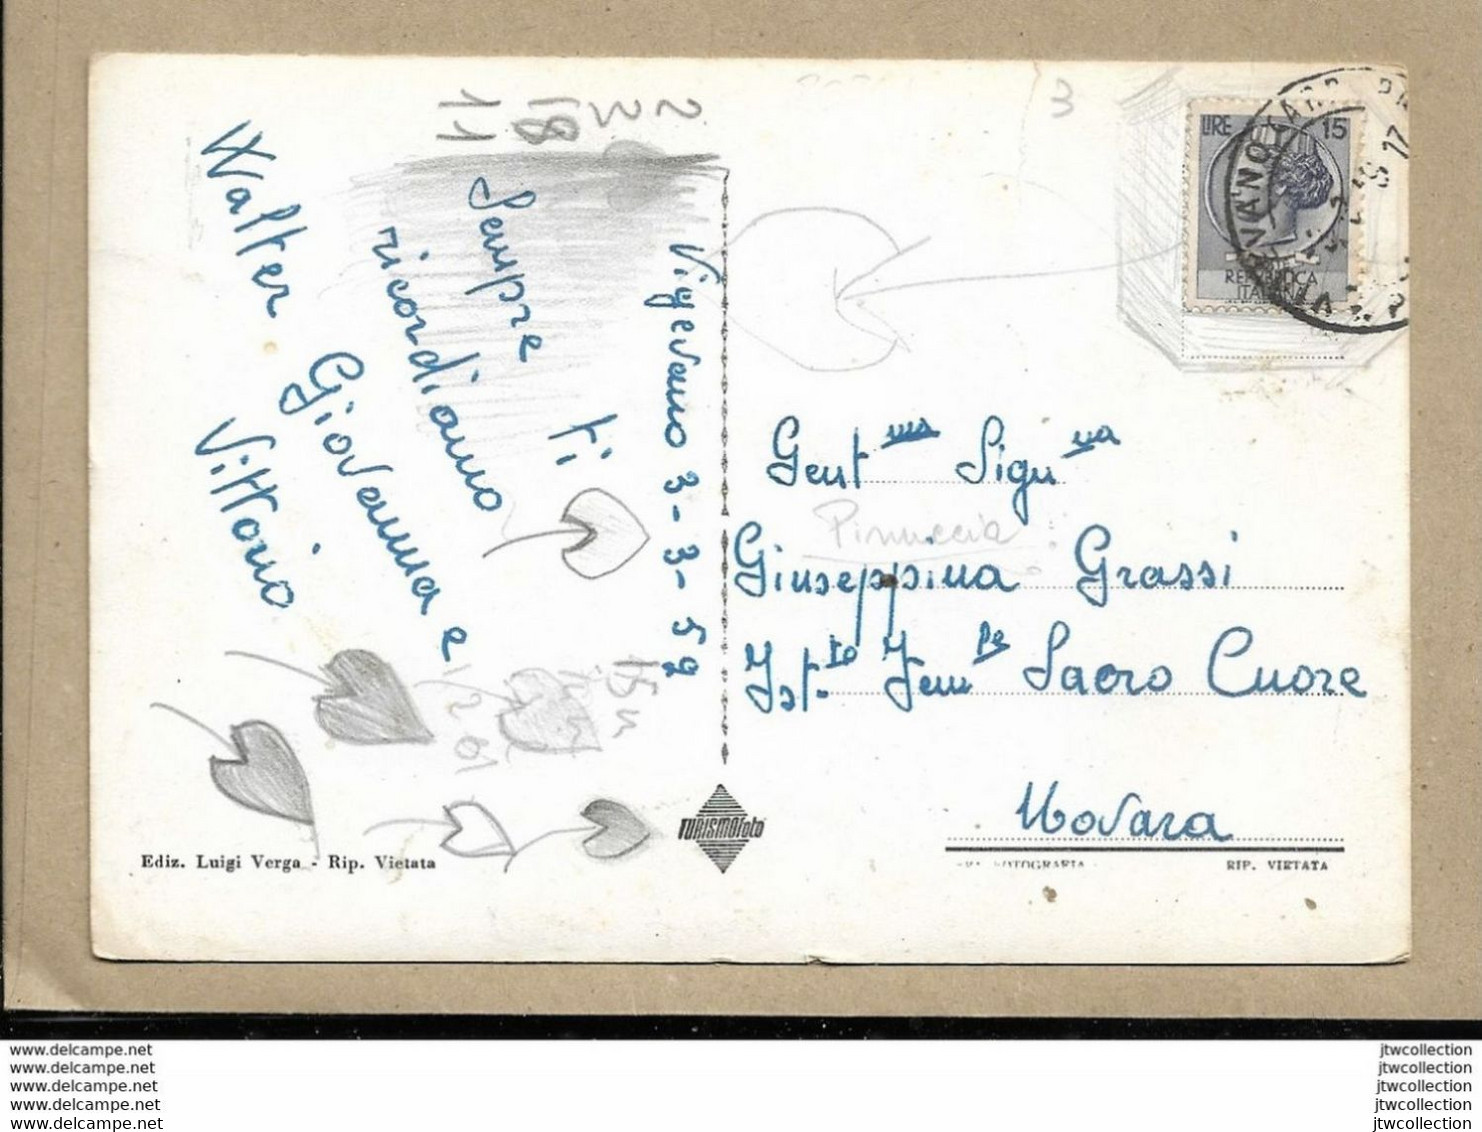 Vigevano 3-3-59
Sempre ti
ricordiamo
Walter Giovanna e
Vittorio
3
LIRE 15
REPUBBLICA
ITALIANA
Gent ma Sigra na
Pinuccia
Giuseppina Grassi
Ist.to Fem le Sacro Cuore
Novara
TURISMOfoto
Ediz. Luigi Verga - Rip. Vietata
VERA FOTOGRAFIA
RIP. VIETATA
www.delcampe.net
www.delcampe.net
www.delcampe.net
www.delcampe.net
www.delcampe.net
jtwcollection
jtwcollection
jtwcollection
jtwcollection
jtwcollection